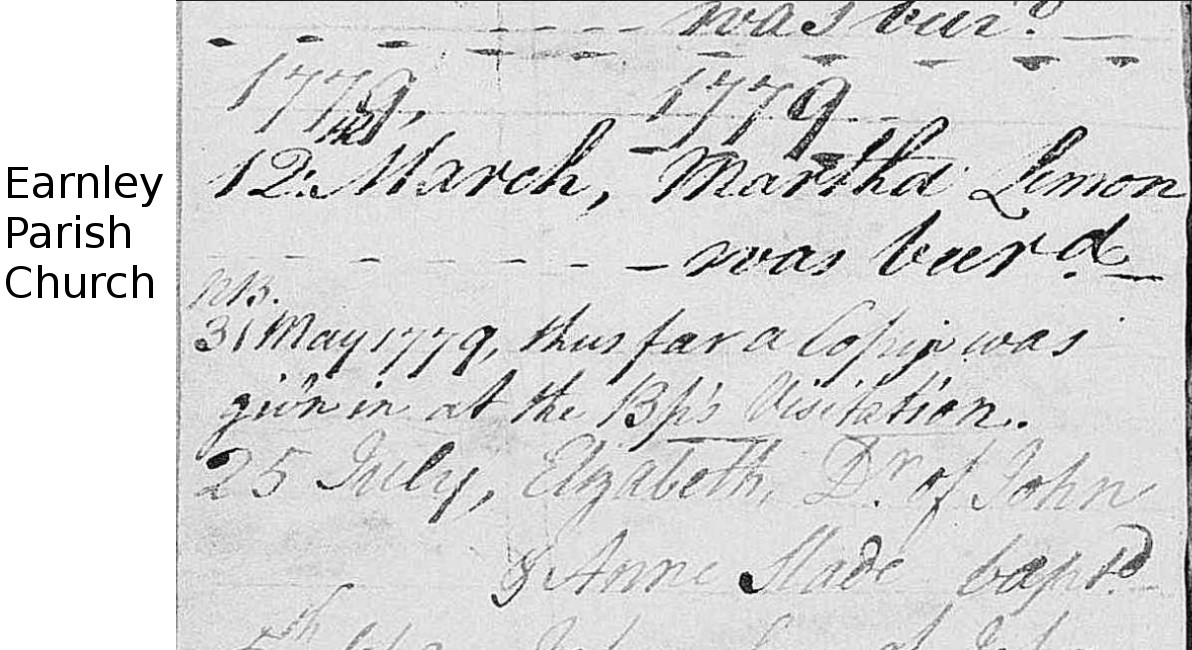 Earnley
Parish
Church
was bur.d
1779, 1779
12. March, Martha Lemon
was burd
NB.
31 May 1779, thus far a Copy was
giv'n in at the Bp's Visitation.
25 July, Elizabeth, Dr. of John
& Anne Slade bapt.d